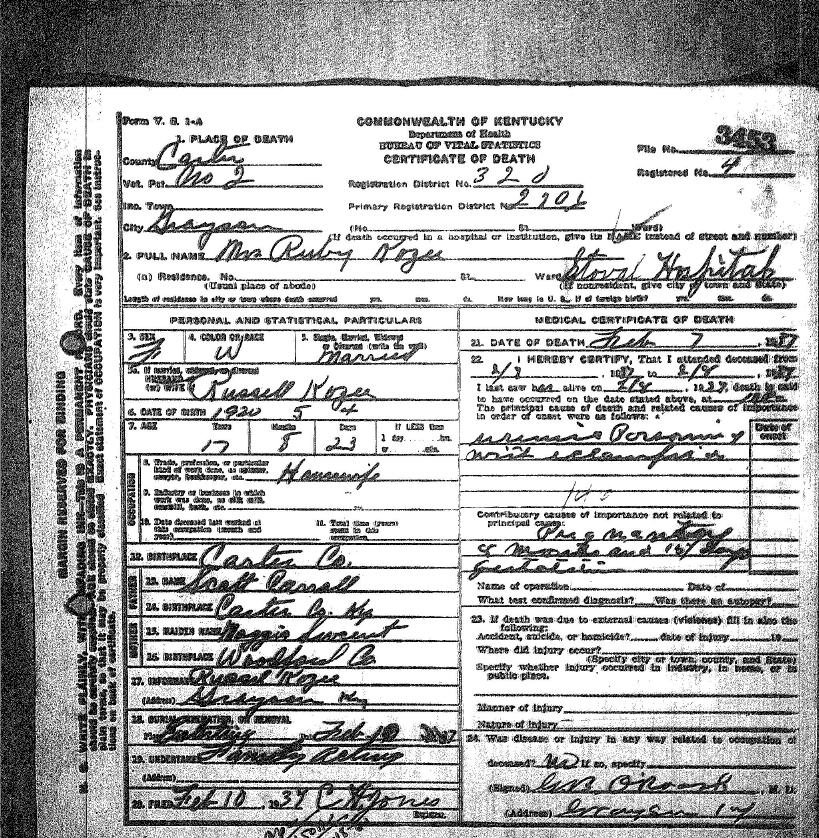 Form V. S. 1-A
COMMONWEALTH OF KENTUCKY
Department of Health
BUREAU OF VITAL STATISTICS
CERTIFICATE OF DEATH
File No. 3453
Registered No. 4
1. PLACE OF DEATH
County Carter
Vot. Pct. No 2
Registration District No. 320
Inc. Town
Primary Registration District No.
City Grayson (No. St. Ward)
(If death occurred in a hospital or institution, give its NAME instead of street and number)
2. FULL NAME Mrs Ruby Kozee
(a) Residence. No. St. Ward Stoval Hospital
(Usual place of abode) (If nonresident, give city of town and State)
Length of residence in city or town where death occurred yrs. mos. ds. How long in U. S., if of foreign birth? yrs. mos. ds.
PERSONAL AND STATISTICAL PARTICULARS
3. SEX F
4. COLOR OR RACE W
5. Single, Married, Widowed or Divorced (write the word) Married
5a. If married, widowed, or divorced
HUSBAND
(or) WIFE Russell Kozee
6. DATE OF BIRTH 1920 5 4
7. AGE Years Months Days If LESS than
17 8 23 1 day hrs. or min.
OCCUPATION
8. Trade, profession, or particular kind of work done, as spinner, sawyer, bookkeeper, etc. Housewife
9. Industry or business in which work was done, as silk mill, sawmill, bank, etc.
10. Date deceased last worked at this occupation (month and year)
11. Total time (years) spent in this occupation
12. BIRTHPLACE Carter Co.
FATHER
13. NAME Scott Carroll
14. BIRTHPLACE Carter Co. Ky
MOTHER
15. MAIDEN NAME Maggie
16. BIRTHPLACE Woodford Co
17. INFORMANT Russel Kozee
(Address) Grayson Ky
18. BURIAL, CREMATION, OR REMOVAL
Feb 10
19. UNDERTAKER Family Acting
(Address)
20. FILED Feb 10, 1937 C H Jones
Registrar.
MEDICAL CERTIFICATE OF DEATH
21. DATE OF DEATH Feb 7, 1937
22. I HEREBY CERTIFY, That I attended deceased from
2/8, 1937 to 2/8, 1937
I last saw her alive on 2/8, 1937, death is said
to have occurred on the date stated above, at m.
The principal cause of death and related causes of importance
in order of onset were as follows:
Date of onset
Uremic Poisoning
with eclampsia
Contributory causes of importance not related to
principal cause:
Pregnancy
8 months and days
gestation
Name of operation Date of
What test confirmed diagnosis? Was there an autopsy?
23. If death was due to external causes (violence) fill in also the
following:
Accident, suicide, or homicide? date of injury 19
Where did injury occur?
(Specify city or town, county, and State)
Specify whether injury occurred in industry, in home, or in
public place.
Manner of injury
Nature of injury
24. Was disease or injury in any way related to occupation of
deceased? No If so, specify
(Signed) M. D.
(Address) Grayson Ky
MARGIN RESERVED FOR BINDING